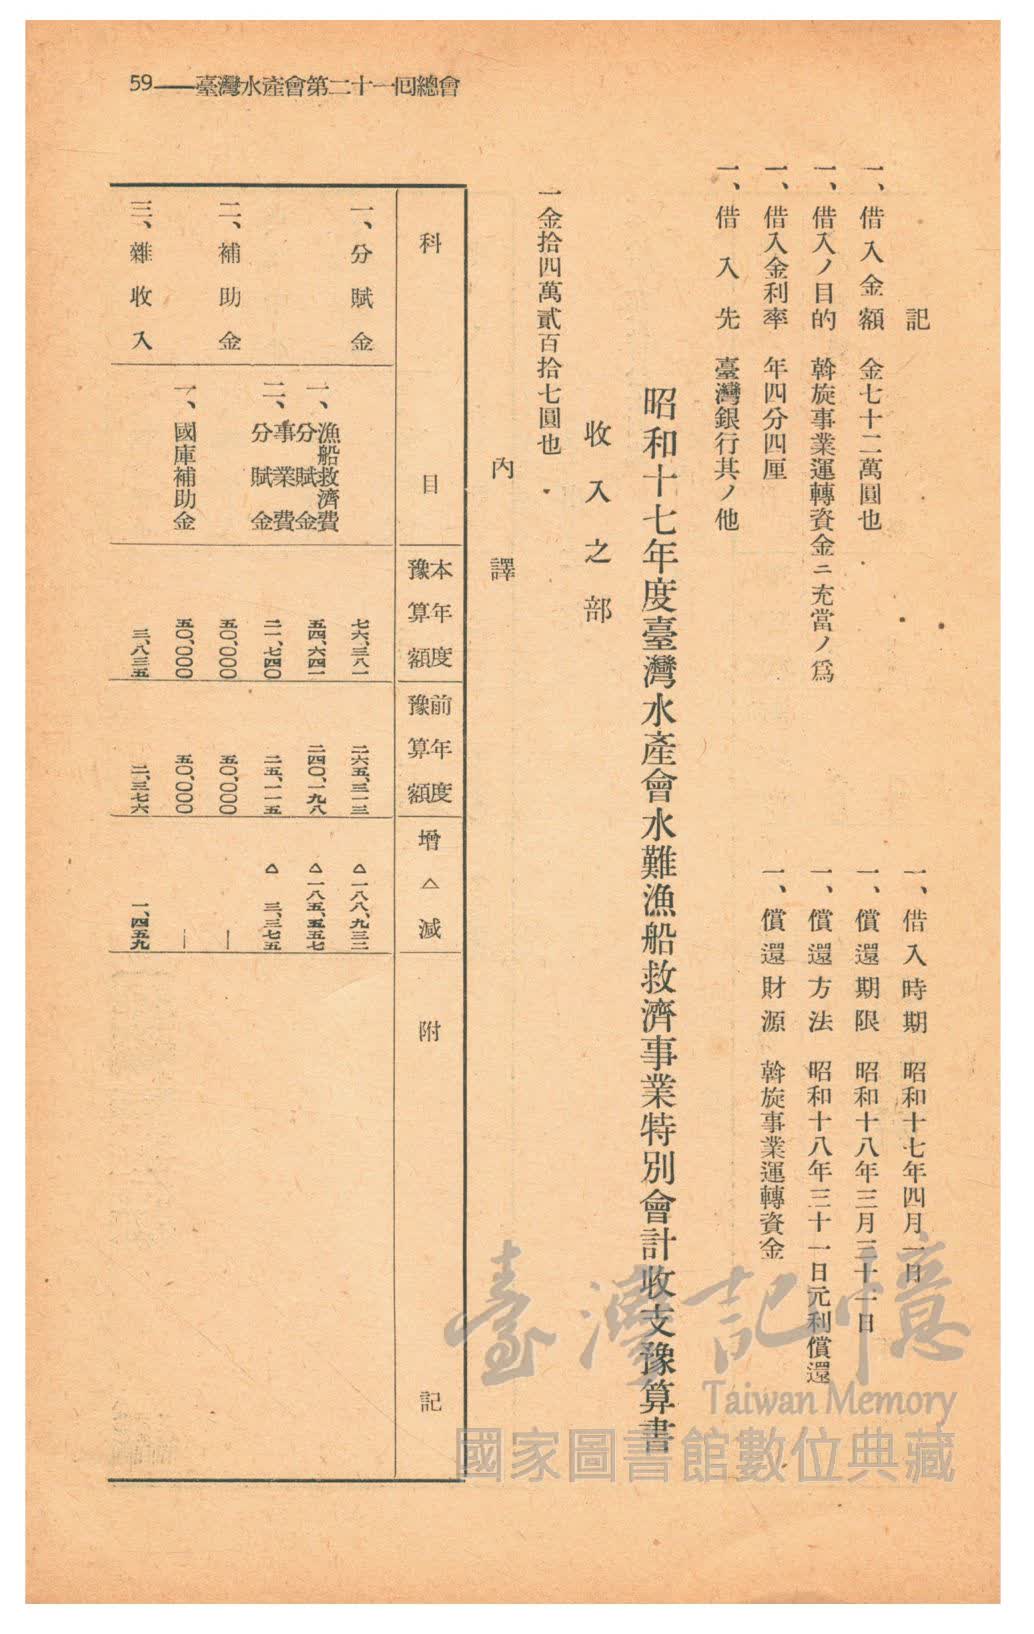 59——臺灣水產會第二十一回總會
記
一、借入金額　金七十二萬圓也
一、借入ノ目的　斡旋事業運轉資金ニ充當ノ爲
一、借入金利率　年四分四厘
一、借入先　臺灣銀行其ノ他
一、借入時期　昭和十七年四月一日
一、償還期限　昭和十八年三月三十一日
一、償還方法　昭和十八年三十一日元利償還
一、償還財源　斡旋事業運轉資金
昭和十七年度臺灣水產會水難漁船救濟事業特別會計收支豫算書
收入之部
一金拾四萬貳百拾七圓也
內譯
科目　本年度豫算額　前年度豫算額　增△減　附記
一、分賦金　七六、三八一　二六五、三一三　△一八八、九三二
一、漁船救濟費分賦金　五四、六四一　二四〇、一九八　△一八五、五五七
二、事業費分賦金　二一、七四〇　二五、一一五　△三、三七五
二、補助金　五〇、〇〇〇　五〇、〇〇〇　—
一、國庫補助金　五〇、〇〇〇　五〇、〇〇〇　—
三、雜收入　三、八三五　二、三七六　一、四五九
臺灣記憶
Taiwan Memory
國家圖書館數位典藏